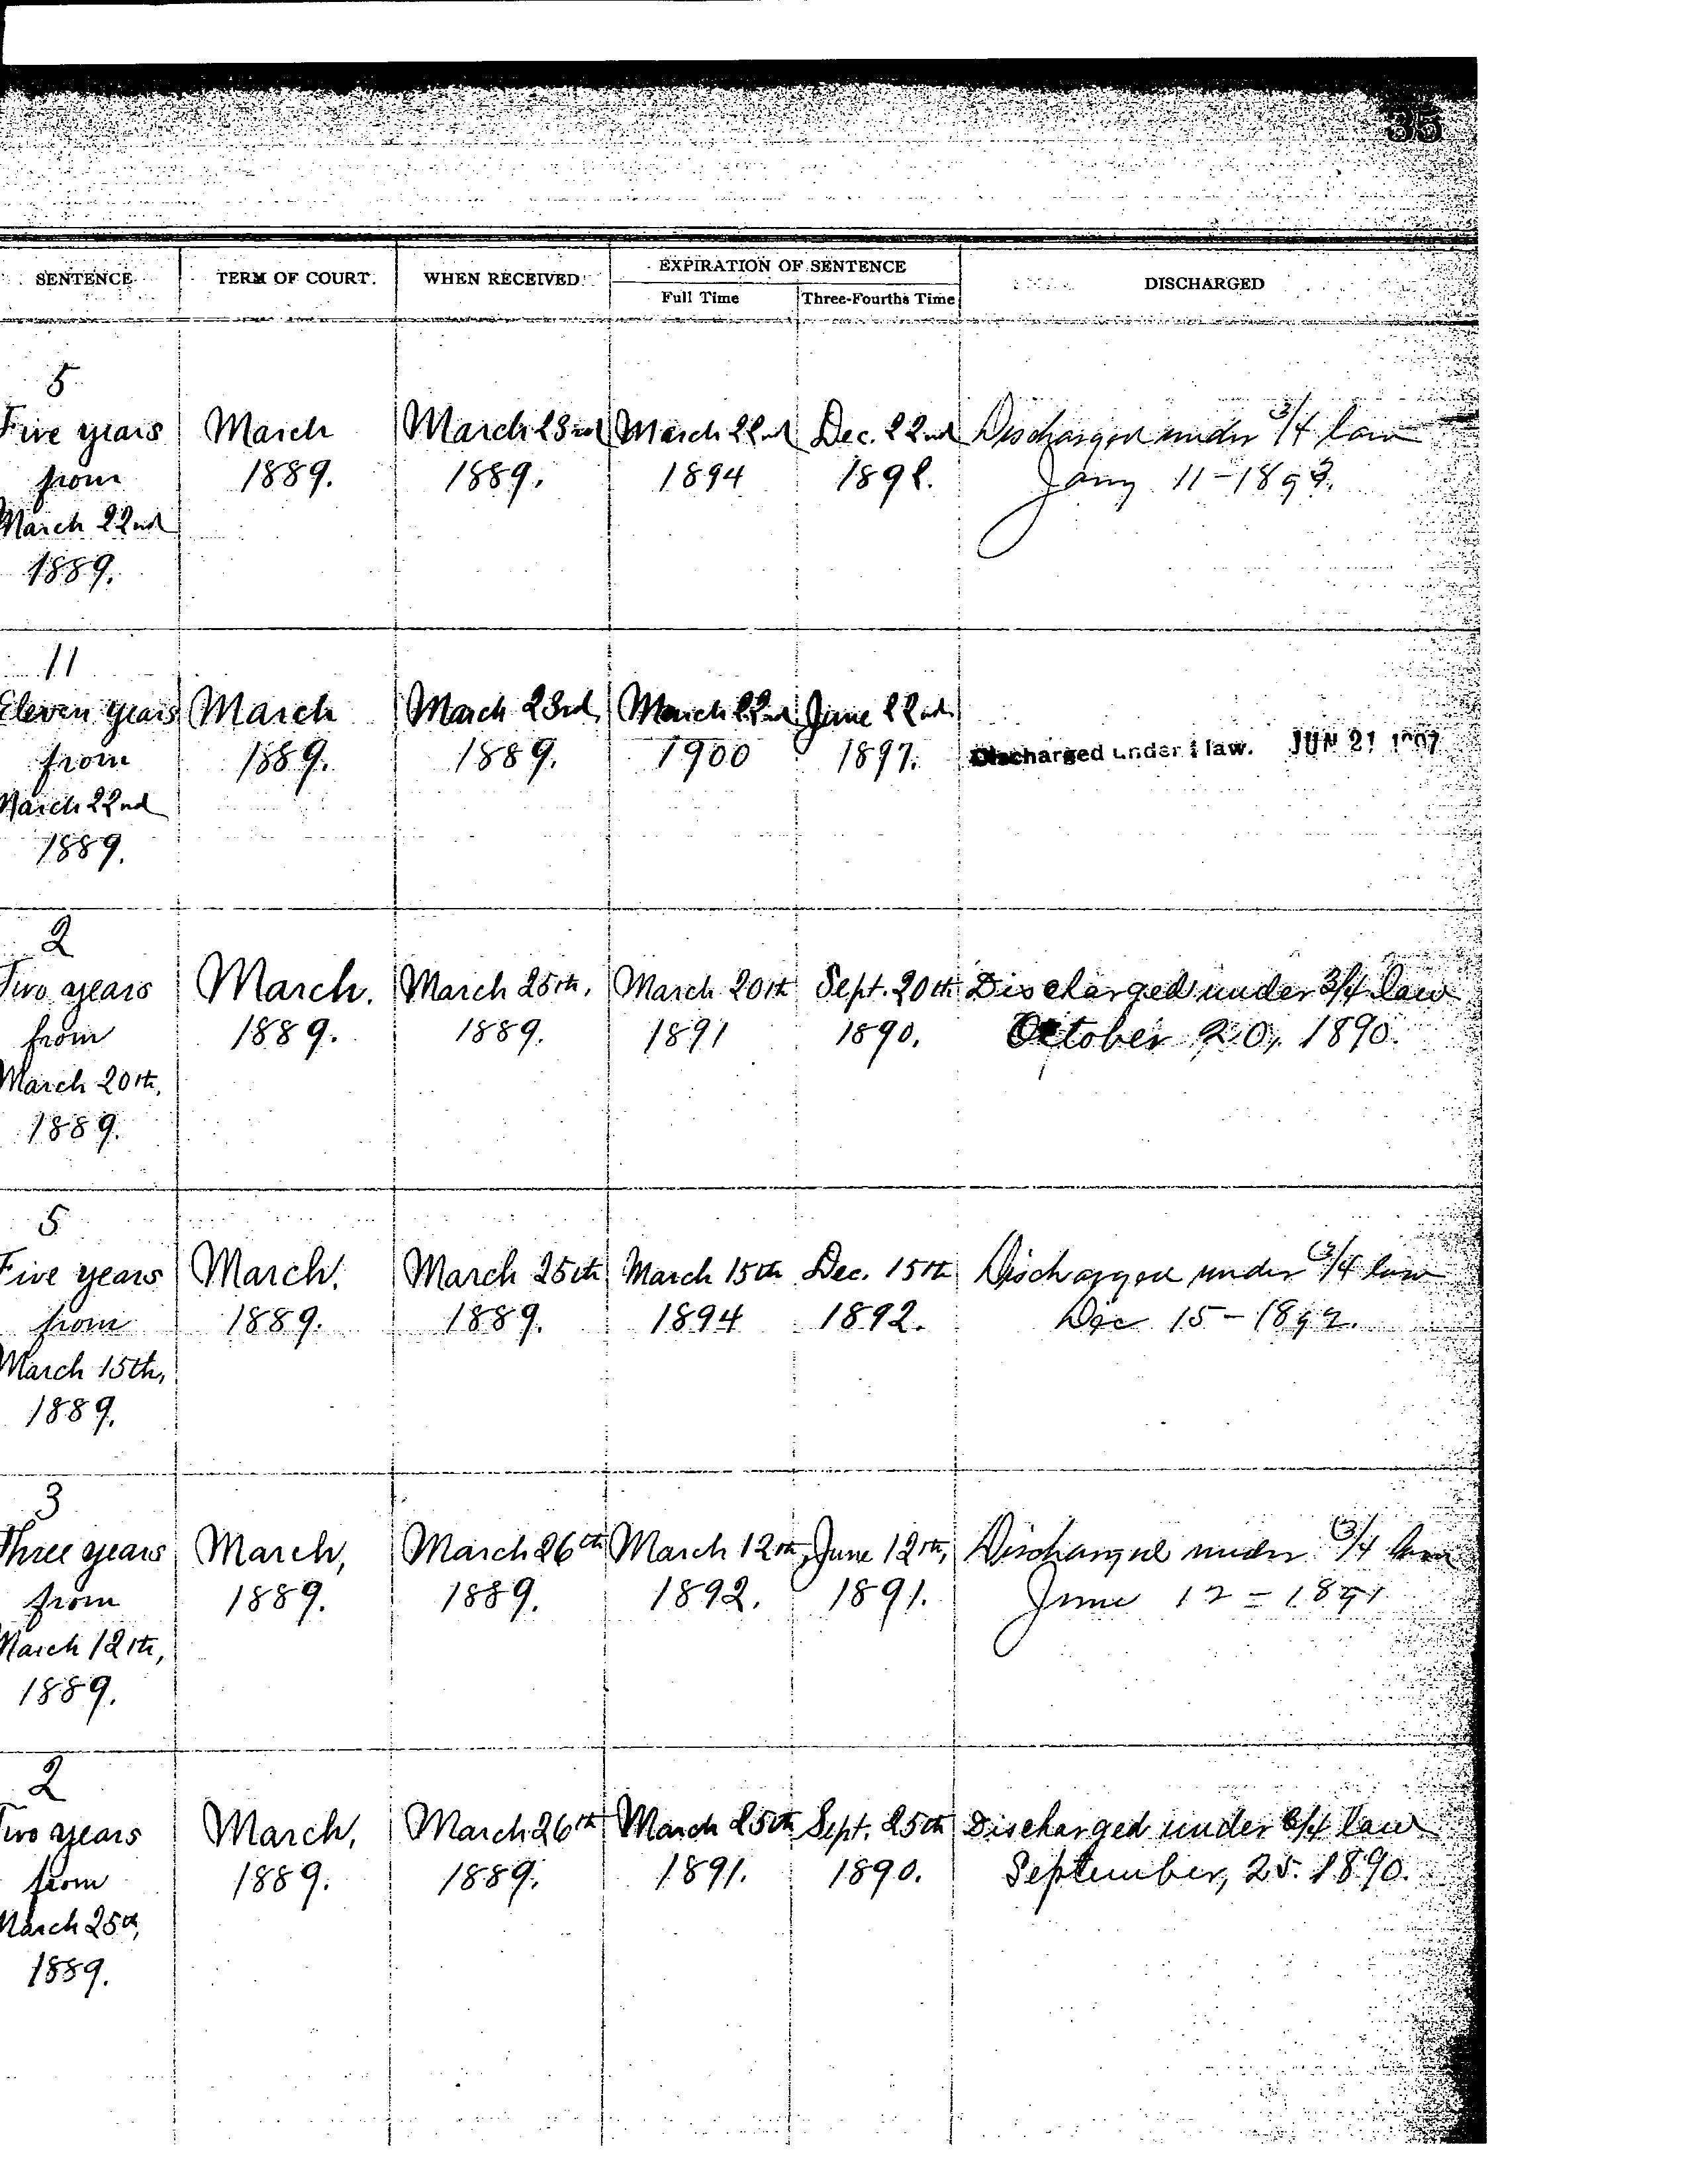 35
SENTENCE
TERM OF COURT.
WHEN RECEIVED
EXPIRATION OF SENTENCE
Full Time
Three-Fourths Time
DISCHARGED
5
Five years
from
March 22nd
1889.
March
1889.
March 23rd
1889.
March 22nd
1894
Dec. 22nd
1892.
Discharged under 3/4 law
Jany 11-1893.
11
Eleven years
from
March 22nd
1889.
March
1889.
March 23rd,
1889.
March 22nd
1900
June 22nd
1897.
Discharged under law. JUN 21
2
Two years
from
March 20th,
1889.
March.
1889.
March 25th,
1889.
March 20th
1891
Sept. 20th
1890.
Discharged under 3/4 law
October 20, 1890.
5
Five years
from
March 15th,
1889.
March.
1889.
March 25th
1889.
March 15th
1894
Dec. 15th
1892.
Discharged under 3/4 law
Dec 15-1892.
3
Three years
from
March 12th,
1889.
March,
1889.
March 26th
1889.
March 12th,
1892.
June 12th,
1891.
Discharged under 3/4 law
June 12=1891
2
Two years
from
March 25th,
1889.
March,
1889.
March 26th
1889.
March 25th
1891.
Sept. 25th
1890.
Discharged under 3/4 law
September, 25. 1890.